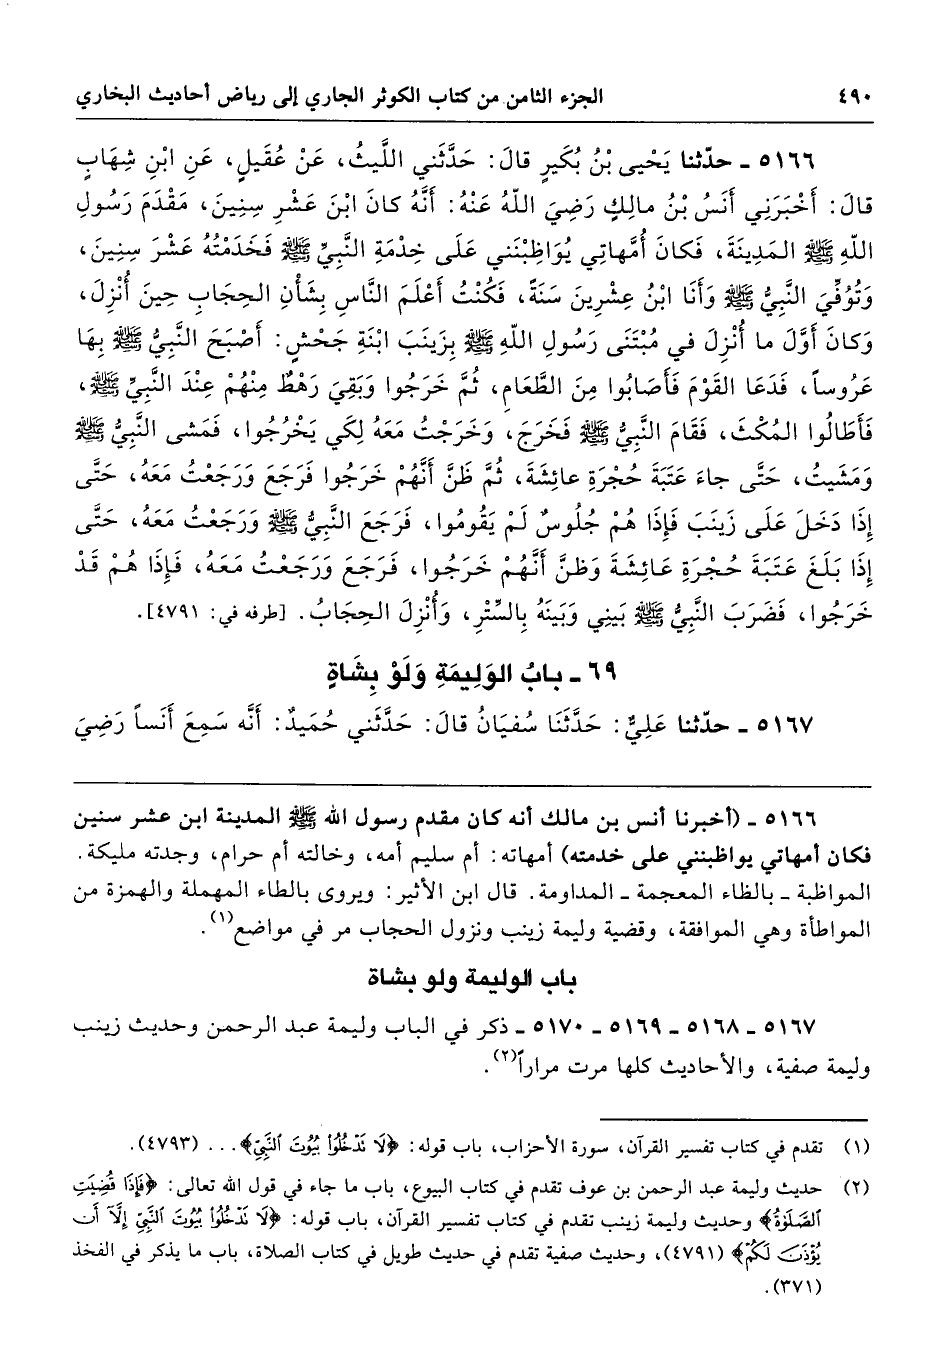 ٤٩٠ الجزء الثامن من كتاب الكوثر الجاري إلى رياض أحاديث البخاري
٥١٦٦ ـ حدّثنا يَحْيى بْنُ بُكَيرٍ قالَ: حَدَّثَنِي اللَّيثُ، عَنْ عُقَيلٍ، عَنِ ابْنِ شِهَابٍ
قالَ: أَخْبَرَنِي أَنَسُ بْنُ مالِكٍ رَضِيَ اللَّهُ عَنْهُ: أَنَّهُ كانَ ابْنَ عَشْرِ سِنِينَ، مَقْدَمَ رَسُولِ
اللّهِ ﷺ المَدِينَةَ، فَكانَ أُمَّهاتِي يُوَاظِبْنَنِي عَلَى خِدْمَةِ النَّبِيِّ ﷺ فَخَدَمْتُهُ عَشْرَ سِنِينَ،
وَتُوُفِّيَ النَّبِيُّ ﷺ وَأَنَا ابْنُ عِشْرِينَ سَنَةً، فَكُنْتُ أَعْلَمَ النَّاسِ بِشَأْنِ الحِجَابِ حِينَ أُنْزِلَ،
وَكانَ أَوَّلَ ما أُنْزِلَ في مُبْتَنَى رَسُولِ اللّهِ ﷺ بِزَينَبَ ابْنَةِ جَحْشٍ: أَصْبَحَ النَّبِيُّ ﷺ بِهَا
عَرُوساً، فَدَعَا القَوْمَ فَأَصَابُوا مِنَ الطَّعَامِ، ثُمَّ خَرَجُوا وَبَقِيَ رَهْطٌ مِنْهُمْ عِنْدَ النَّبِيِّ ﷺ،
فَأَطَالُوا المُكْثَ، فَقَامَ النَّبِيُّ ﷺ فَخَرَجَ، وَخَرَجْتُ مَعَهُ لِكَي يَخْرُجُوا، فَمَشى النَّبِيُّ ﷺ
وَمَشَيتُ، حَتَّى جاءَ عَتَبَةَ حُجْرَةِ عائِشَةَ، ثُمَّ ظَنَّ أَنَّهُمْ خَرَجُوا فَرَجَعَ وَرَجَعْتُ مَعَهُ، حَتَّى
إِذَا دَخَلَ عَلَى زَينَبَ فَإِذَا هُمْ جُلُوسٌ لَمْ يَقُومُوا، فَرَجَعَ النَّبِيُّ ﷺ وَرَجَعْتُ مَعَهُ، حَتَّى
إِذَا بَلَغَ عَتَبَةَ حُجْرَةِ عَائِشَةَ وَظَنَّ أَنَّهُمْ خَرَجُوا، فَرَجَعَ وَرَجَعْتُ مَعَهُ، فَإِذَا هُمْ قَدْ
خَرَجُوا، فَضَرَبَ النَّبِيُّ ﷺ بَيني وَبَينَهُ بِالسِّتْرِ، وَأُنْزِلَ الحِجَابُ. [طرفه في: ٤٧٩١].
٦٩ ـ بابُ الوَلِيمَةِ وَلَوْ بِشَاةٍ
٥١٦٧ ـ حدّثنا عَلِيٌّ: حَدَّثَنَا سُفيَانُ قالَ: حَدَّثَنِي حُمَيدٌ: أَنَّه سَمِعَ أَنَساً رَضِيَ
٥١٦٦ ـ (أخبرنا أنس بن مالك أنه كان مقدم رسول الله ﷺ المدينة ابن عشر سنين
فكان أمهاتي يواظبنني على خدمته) أمهاته: أم سليم أمه، وخالته أم حرام، وجدته مليكة.
المواظبة ـ بالظاء المعجمة ـ المداومة. قال ابن الأثير: ويروى بالطاء المهملة والهمزة من
المواطأة وهي الموافقة، وقضية وليمة زينب ونزول الحجاب مر في مواضع(١).
باب الوليمة ولو بشاة
٥١٦٧ ـ ٥١٦٨ ـ ٥١٦٩ ـ ٥١٧٠ ـ ذكر في الباب وليمة عبد الرحمن وحديث زينب
وليمة صفية، والأحاديث كلها مرت مراراً(٢).
(١) تقدم في كتاب تفسير القرآن، سورة الأحزاب، باب قوله: ﴿لَا تَدْخُلُوا۟ بُيُوتَ ٱلنَّبِىِّ﴾... (٤٧٩٣).
(٢) حديث وليمة عبد الرحمن بن عوف تقدم في كتاب البيوع، باب ما جاء في قول الله تعالى: ﴿فَإِذَا قُضِيَتِ
ٱلصَّلَوٰةُ﴾ وحديث وليمة زينب تقدم في كتاب تفسير القرآن، باب قوله: ﴿لَا تَدْخُلُوا۟ بُيُوتَ ٱلنَّبِىِّ إِلَّآ أَن
يُؤْذَنَ لَكُمْ﴾ (٤٧٩١)، وحديث صفية تقدم في حديث طويل في كتاب الصلاة، باب ما يذكر في الفخذ
(٣٧١).